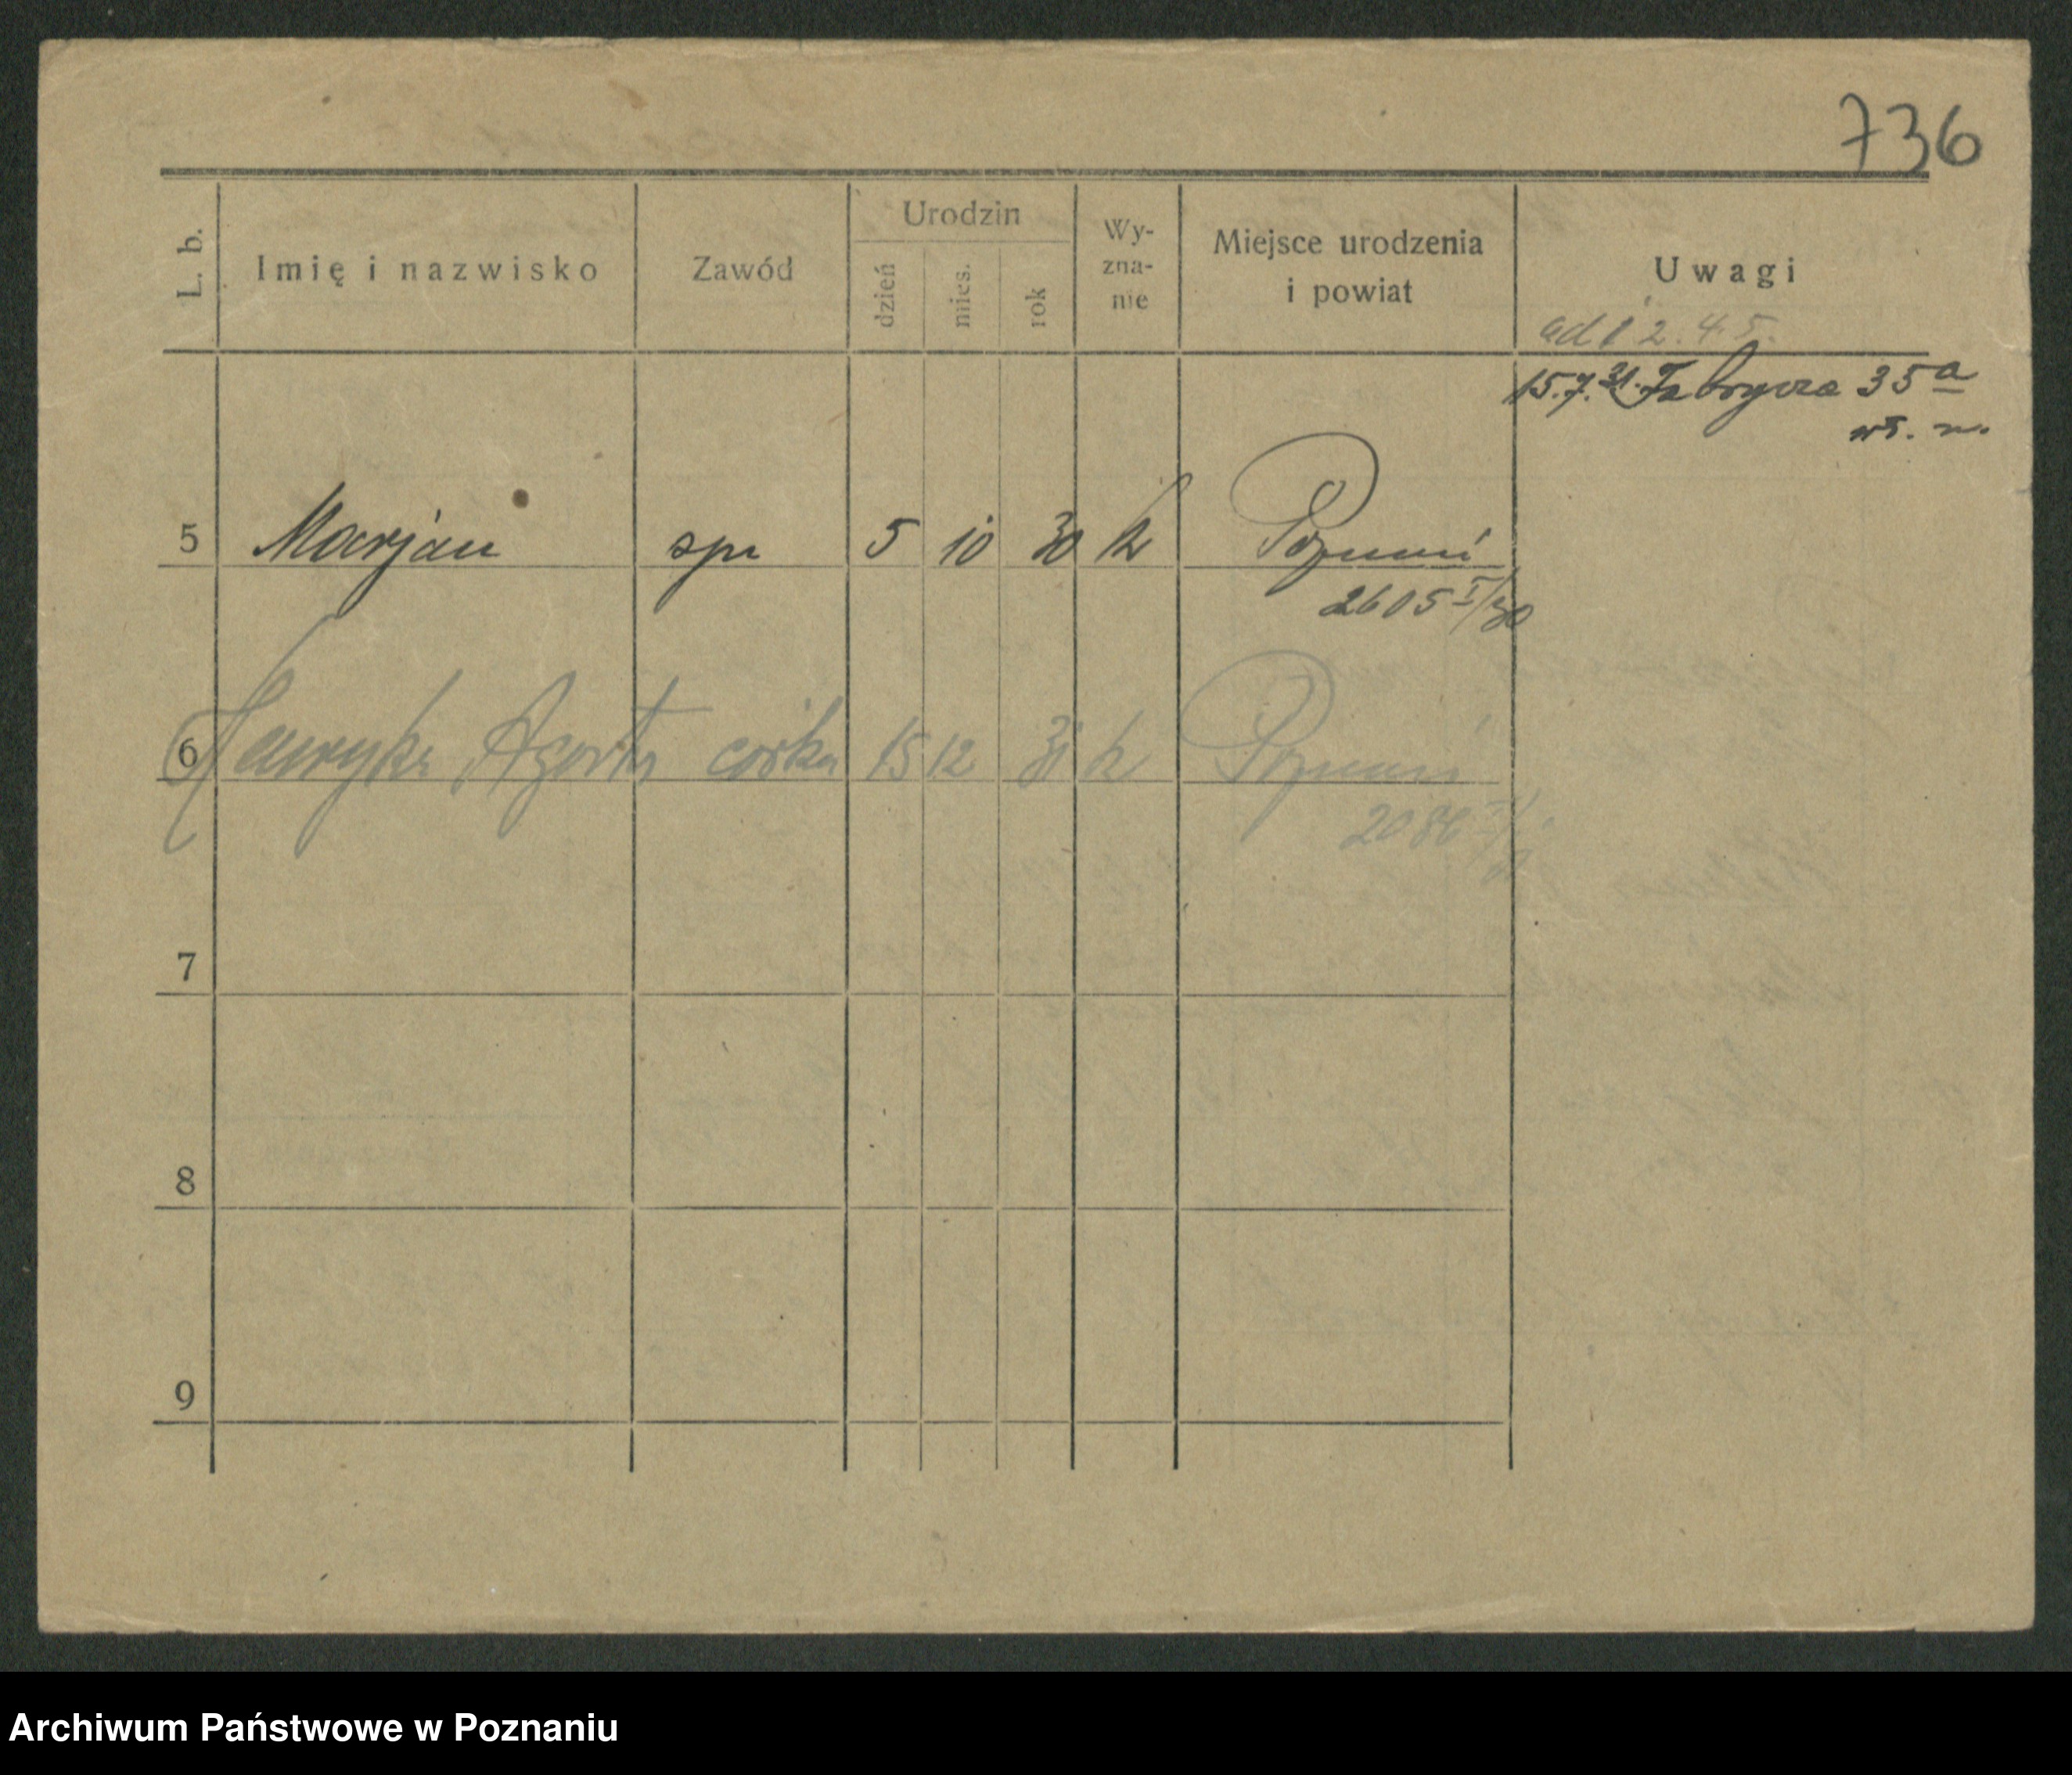 736
L. b. Imię i nazwisko Zawód Urodzin dzień mies. rok Wy-zna-nie Miejsce urodzenia i powiat Uwagi
ad 1 2. 4. 5.
15.7.31. Fabrycza 35a
5 Marjan syn 5 10 30 k Poznań
2605 I/30
6 Henryka Agata córka 15 12 31 k Poznań
7
8
9
Archiwum Państwowe w Poznaniu